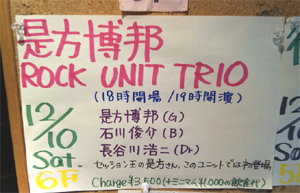 是方博邦
ROCK UNIT TRIO
(18時開場/19時開演)
12/10
Sat.
6F
是方博邦(G)
石川俊介(B)
長谷川浩二(Dr)
セッション王の是方さん、このユニットでは初登場
Charge¥3,500(+ミニマム¥1,000の飲食代)